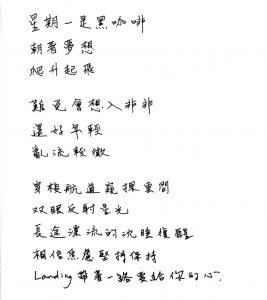 星期一是黑咖啡
朝著夢想
爬升起飛
難免會想入非非
還好年輕
亂流輕微
穿梭航道窺探雲間
双眼反射星光
長途漂流的沈睡催醒
相信焦慮堅持保持
Landing 帶著一路要給你的心